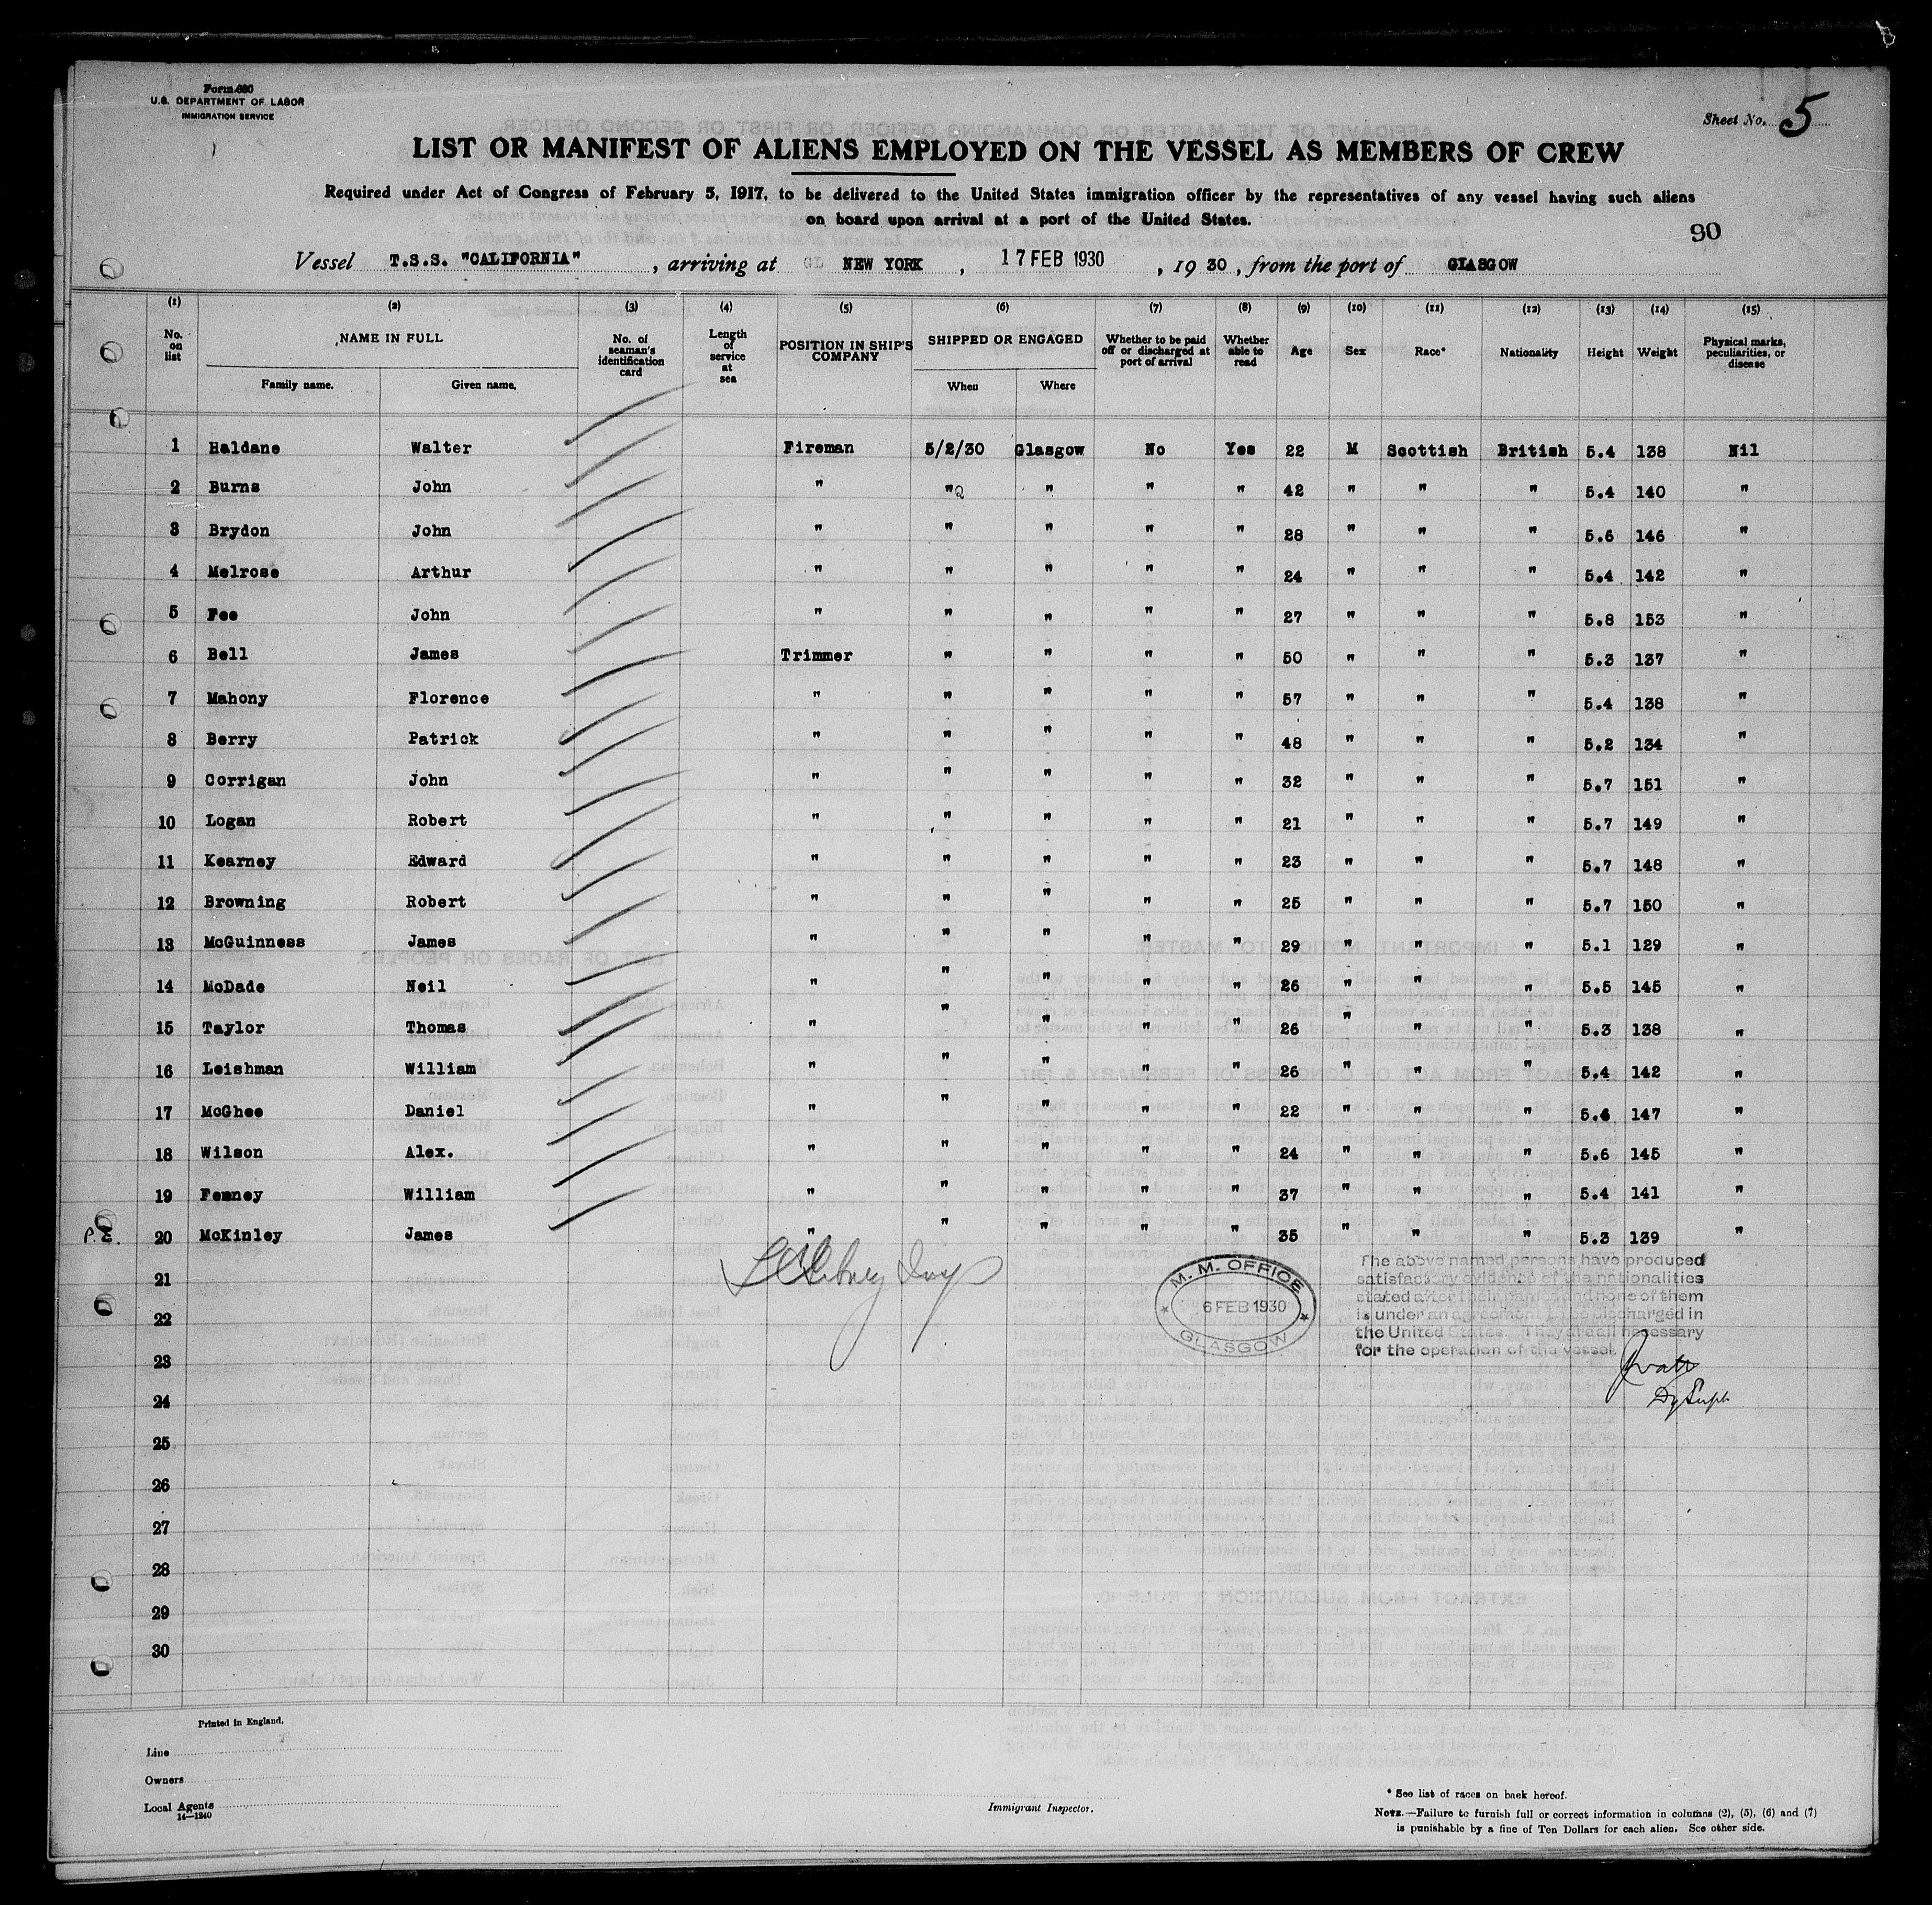 Form 680
U.S. DEPARTMENT OF LABOR
IMMIGRATION SERVICE
Sheet No. 5
LIST OR MANIFEST OF ALIENS EMPLOYED ON THE VESSEL AS MEMBERS OF CREW
Required under Act of Congress of February 5, 1917, to be delivered to the United States immigration officer by the representatives of any vessel having such aliens
on board upon arrival at a port of the United States.
90
Vessel T.S.S. "CALIFORNIA", arriving at NEW YORK, 17 FEB 1930, 1930, from the port of GLASGOW
(1) (2) (3) (4) (5) (6) (7) (8) (9) (10) (11) (12) (13) (14) (15)
No. on list NAME IN FULL No. of seaman's identification card Length of service at sea POSITION IN SHIP'S COMPANY SHIPPED OR ENGAGED Whether to be paid off or discharged at port of arrival Whether able to read Age Sex Race* Nationality Height Weight Physical marks, peculiarities, or disease
Family name. Given name. When Where
1 Haldane Walter Fireman 5/2/30 Glasgow No Yes 22 M Scottish British 5.4 138 Nil
2 Burns John " " " " " 42 " " " 5.4 140 "
3 Brydon John " " " " " 28 " " " 5.6 146 "
4 Melrose Arthur " " " " " 24 " " " 5.4 142 "
5 Fee John " " " " " 27 " " " 5.8 153 "
6 Bell James Trimmer " " " " 50 " " " 5.3 137 "
7 Mahony Florence " " " " " 57 " " " 5.4 138 "
8 Berry Patrick " " " " " 48 " " " 5.2 134 "
9 Corrigan John " " " " " 32 " " " 5.7 151 "
10 Logan Robert " " " " " 21 " " " 5.7 149 "
11 Kearney Edward " " " " " 23 " " " 5.7 148 "
12 Browning Robert " " " " " 25 " " " 5.7 150 "
13 McGuinness James " " " " " 29 " " " 5.1 129 "
14 McDade Neil " " " " " 26 " " " 5.5 145 "
15 Taylor Thomas " " " " " 26 " " " 5.3 138 "
16 Leishman William " " " " " 26 " " " 5.4 142 "
17 McGhee Daniel " " " " " 22 " " " 5.6 147 "
18 Wilson Alex. " " " " " 24 " " " 5.6 145 "
19 Feeney William " " " " " 37 " " " 5.4 141 "
P.E. 20 McKinley James " " " " " 35 " " " 5.3 139 "
21
22
23
24
25
26
27
28
29
30
M. M. OFFICE
6 FEB 1930
GLASGOW
The above named persons have produced
satisfactory evidence of the nationalities
stated after their names and none of them
is under an agreement to be discharged in
the United States. They are all necessary
for the operation of the vessel.
Printed in England.
Line
Owners
Local Agents
14—1240
Immigrant Inspector.
* See list of races on back hereof.
NOTE.—Failure to furnish full or correct information in columns (2), (5), (6) and (7)
is punishable by a fine of Ten Dollars for each alien. See other side.